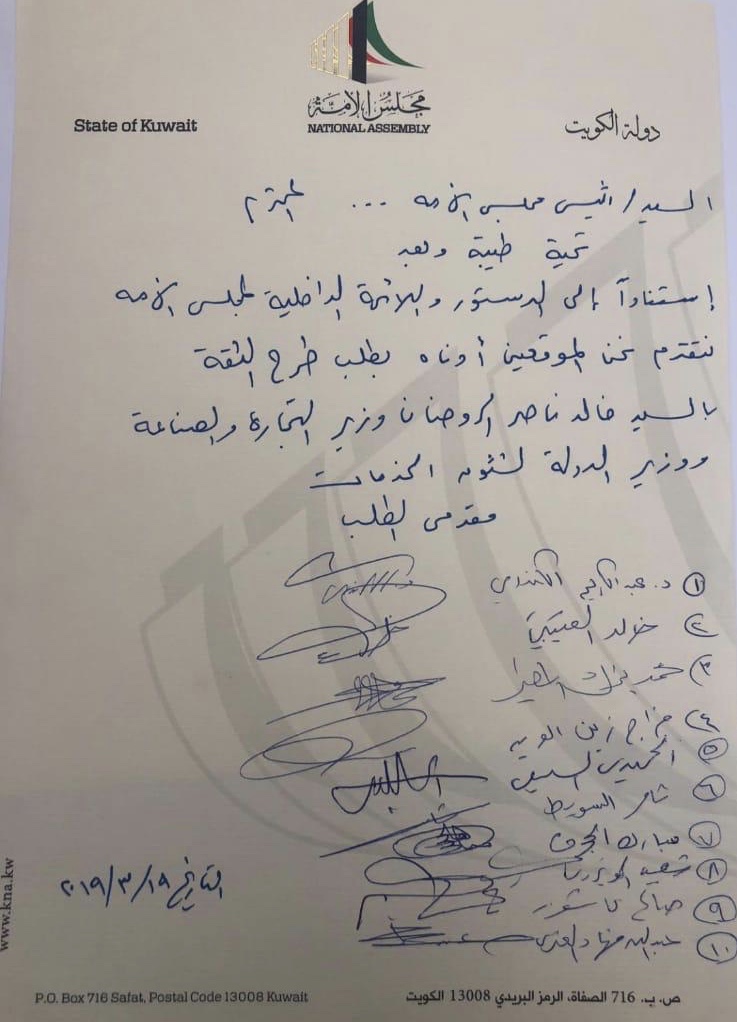 مجلس الأمة
NATIONAL ASSEMBLY
State of Kuwait
دولة الكويت
السيد / رئيس مجلس الأمة ... المحترم
تحية طيبة وبعد
إستناداً إلى الدستور واللائحة الداخلية لمجلس الأمه
نتقدم نحن الموقعين أدناه بطلب طرح الثقة
بالسيد خالد ناصر الروضان وزير التجارة والصناعة
ووزير الدولة لشئون الخدمات
مقدمي الطلب
① د. عبدالكريم الكندري
② خالد العتيبي
③ محمد براك المطير
④ فراج زبن العربيد
⑤ الحميدي السبيعي
⑥ ثامر السويط
⑦ مبارك الحجرف
⑧ شعيب المويزري
⑨ صالح عاشور
⑩ عبدالله فهاد العنزي
التاريخ ٢٠١٩/٣/١٩
www.kna.kw
P.O. Box 716 Safat, Postal Code 13008 Kuwait
ص. ب. 716 الصفاة، الرمز البريدي 13008 الكويت